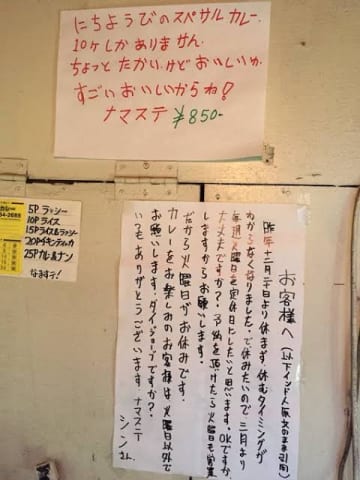 にちようびのスペサルカレー
10ケしかありません
ちょっとたかいけどおいしいよ
すごいおいしいからね!
ナマステ ¥850-
5P ラッシー
10P ライス
15P ライス&ラッシー
20P チキンティッカ
25P カレー&ナン
なますテ!
お客様へ(以下インド人原文のまま引用)
昨年十二月二十日より休まず休むタイミングが
わからなくなりました。で休みたいので三月より
毎週火曜日を定休日にしたいと思います。OKですか
大丈夫ですか?予約を頂けたら火曜日も営業
しますからお願いします。
だから火曜日がお休みです。
カレーをお楽しみのお客様は火曜日以外で
お願いします。ダイジョーブですか?
いつもありがとうございます ナマステ
シンさん